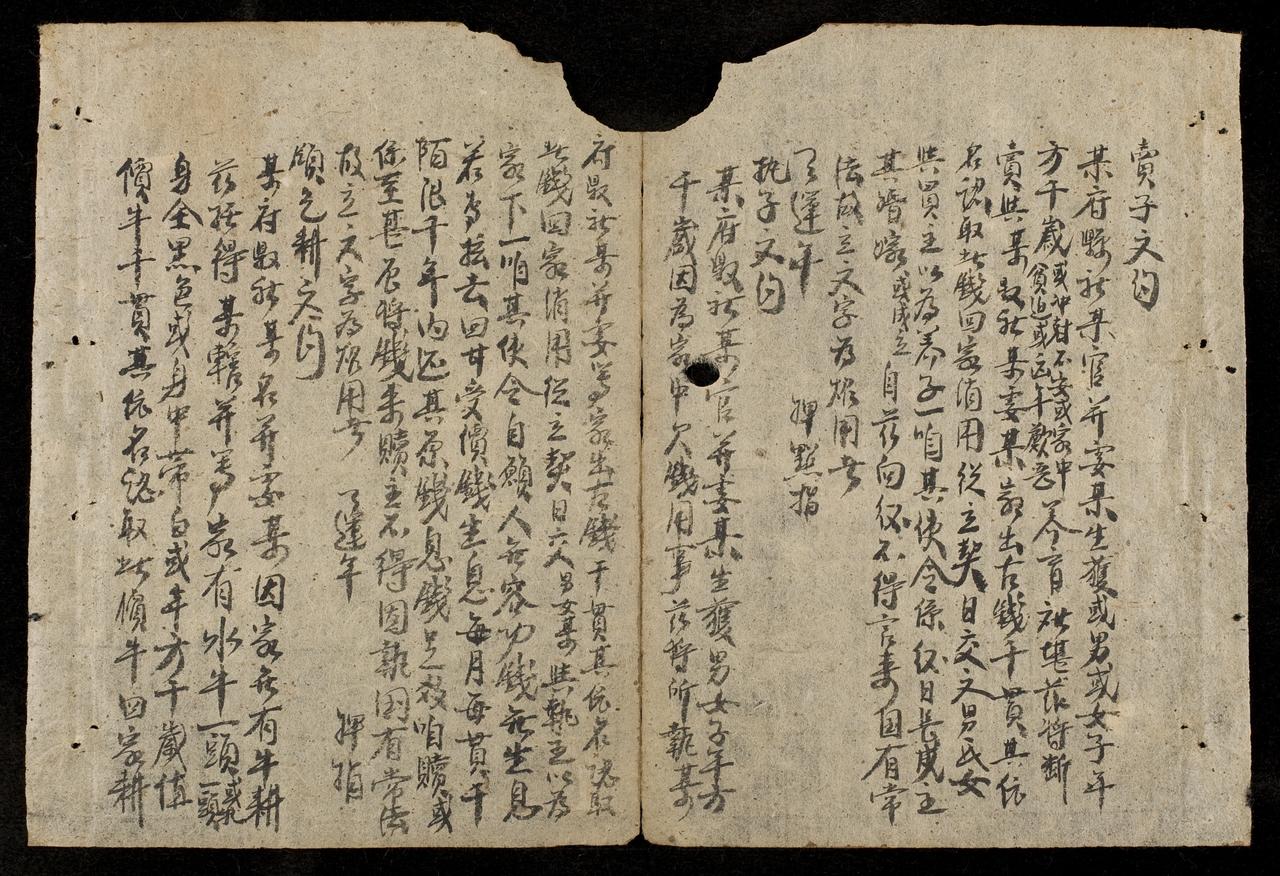 賣子文約
某府縣社某官并妻某生獲或男或女子年
方干歲或冲尅不安或家中貧迫或之年歉荒養育祉堪茲將断
賣與某縣社某妻某家出古錢干貫其依
名認取此錢回家消用從立契日交父男氏女
與買主以為养子一咱其使令係後日長成主
其婚嫁或成立自茲向後不得言棄国有常
法故立文字為炤用者
天運年 押點指
執子文約
某府縣社某官并妻某生獲男女子年方
干歲因為家中欠錢用事茲將所執某
府縣社某并妻等家出古錢干貫其依名認取
此錢回家消用從立契日交男女某與執主以為
家下一咱其使令自願人無容功錢無生息
若为拡去回甘受價錢生息每月每貫干
陌限干年内还其原錢息錢足数咱贖或
係至甚辰将錢来贖主不得固執国有常法
故立文字為炤用者 天運年 押指
領乞耕文約
某府縣社某名并妻某因家無有牛耕
茲括得某轄并等家有水牛一頭或一頭
身全黑色或身中带白或年方干歲值
價牛干貫其依名認取此價牛回家耕